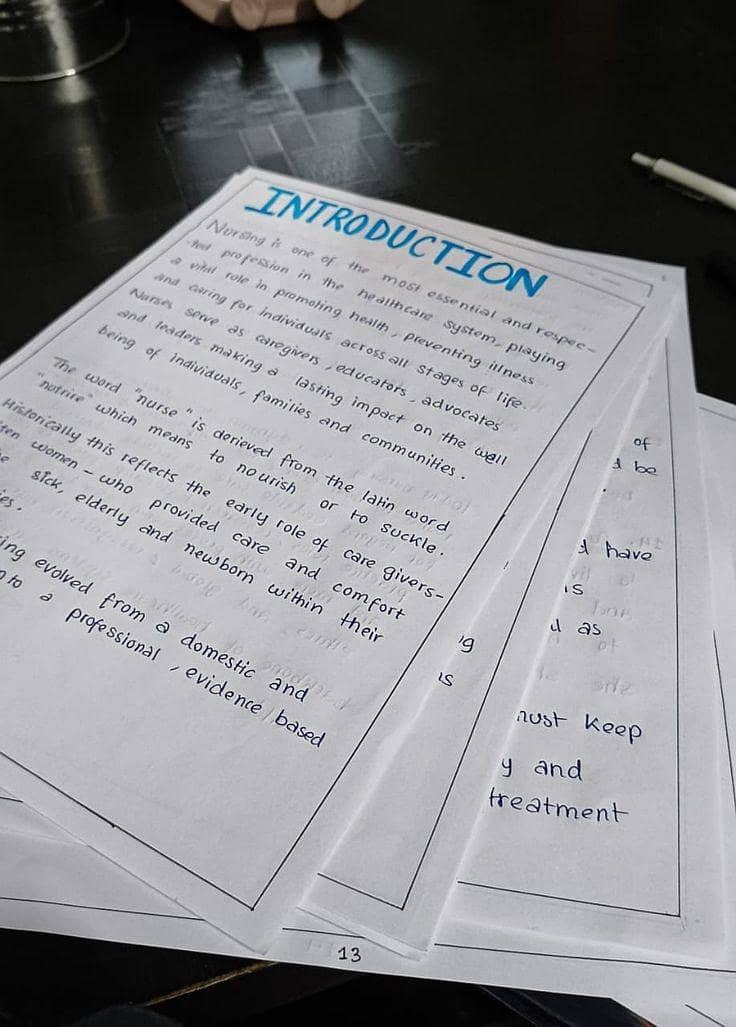 INTRODUCTION
Nursing is one of the most essential and respec-
-ted profession in the healthcare system, playing
a vital role in promoting health, preventing illness
and caring for individuals across all stages of life.
Nurses serve as caregivers, educators, advocates
and leaders making a lasting impact on the well
being of individuals, families and communities.
The word "nurse" is derieved from the latin word
"nutrire" which means to nourish or to suckle.
Historically this reflects the early role of care givers-
ten women - who provided care and comfort
sick, elderly and newborn within their
ies.
ing evolved from a domestic and
to a professional, evidence based
of
d be
d have
is
d as
ig
is
must keep
y and
treatment
13